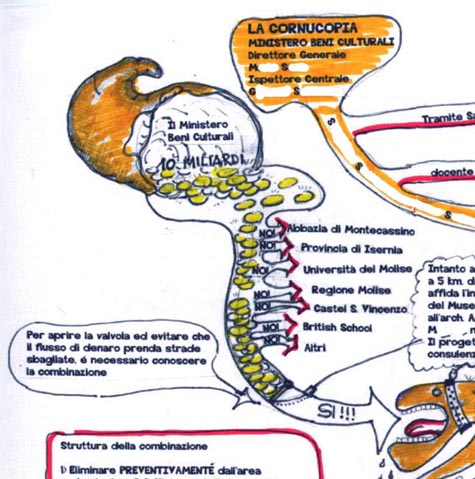 LA CORNUCOPIA
MINISTERO BENI CULTURALI
Direttore Generale
M S
Ispettore Centrale
G S
Il Ministero
Beni Culturali
10 MILIARDI
Tramite
S
S
S
S
docente
NO! Abbazia di Montecassino
NO! Provincia di Isernia
NO! Università del Molise
NO! Regione Molise
NO! Castel S. Vincenzo
NO! British School
NO! Altri
Intanto a
a 5 km. di
affida l'in
del Muse
all'arch. A
M
Il proget
consulenz
Per aprire la valvola ed evitare che
il flusso di denaro prenda strade
sbagliate, é necessario conoscere
la combinazione
SI !!!
Struttura della combinazione
1) Eliminare PREVENTIVAMENTE dall'area